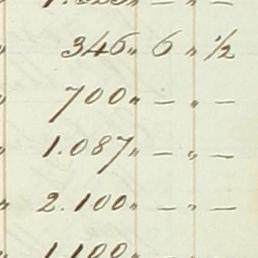 346 " 6 " 1/2
700 " — " —
1.087 " — " —
2.100 " — " —
1.100 " — " —